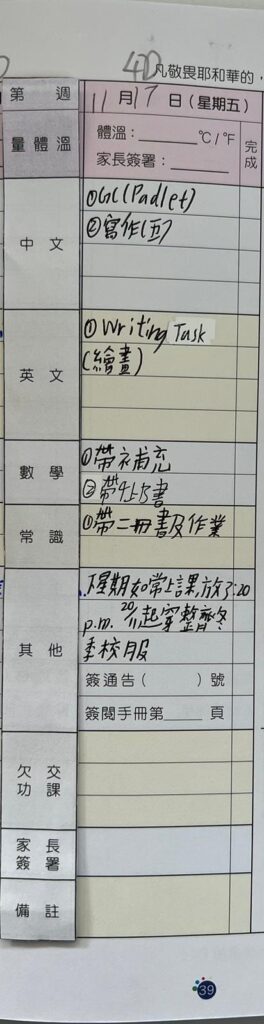 4D 凡敬畏耶和華的，
第 週 11月17日(星期五)
量體溫 體溫：______°C/°F 完成
家長簽署：______
中文 ①GC(Padlet)
②寫作(五)
英文 ①Writing Task
(繪畫)
數學 ①帶補充
②帶4上B書
常識 ①帶二冊書及作業
其他 下星期如常上課,放學3:20
p.m. 20/11起穿整齊冬
季校服
簽通告( )號
簽閱手冊第____頁
欠交功課
家長簽署
備註
39